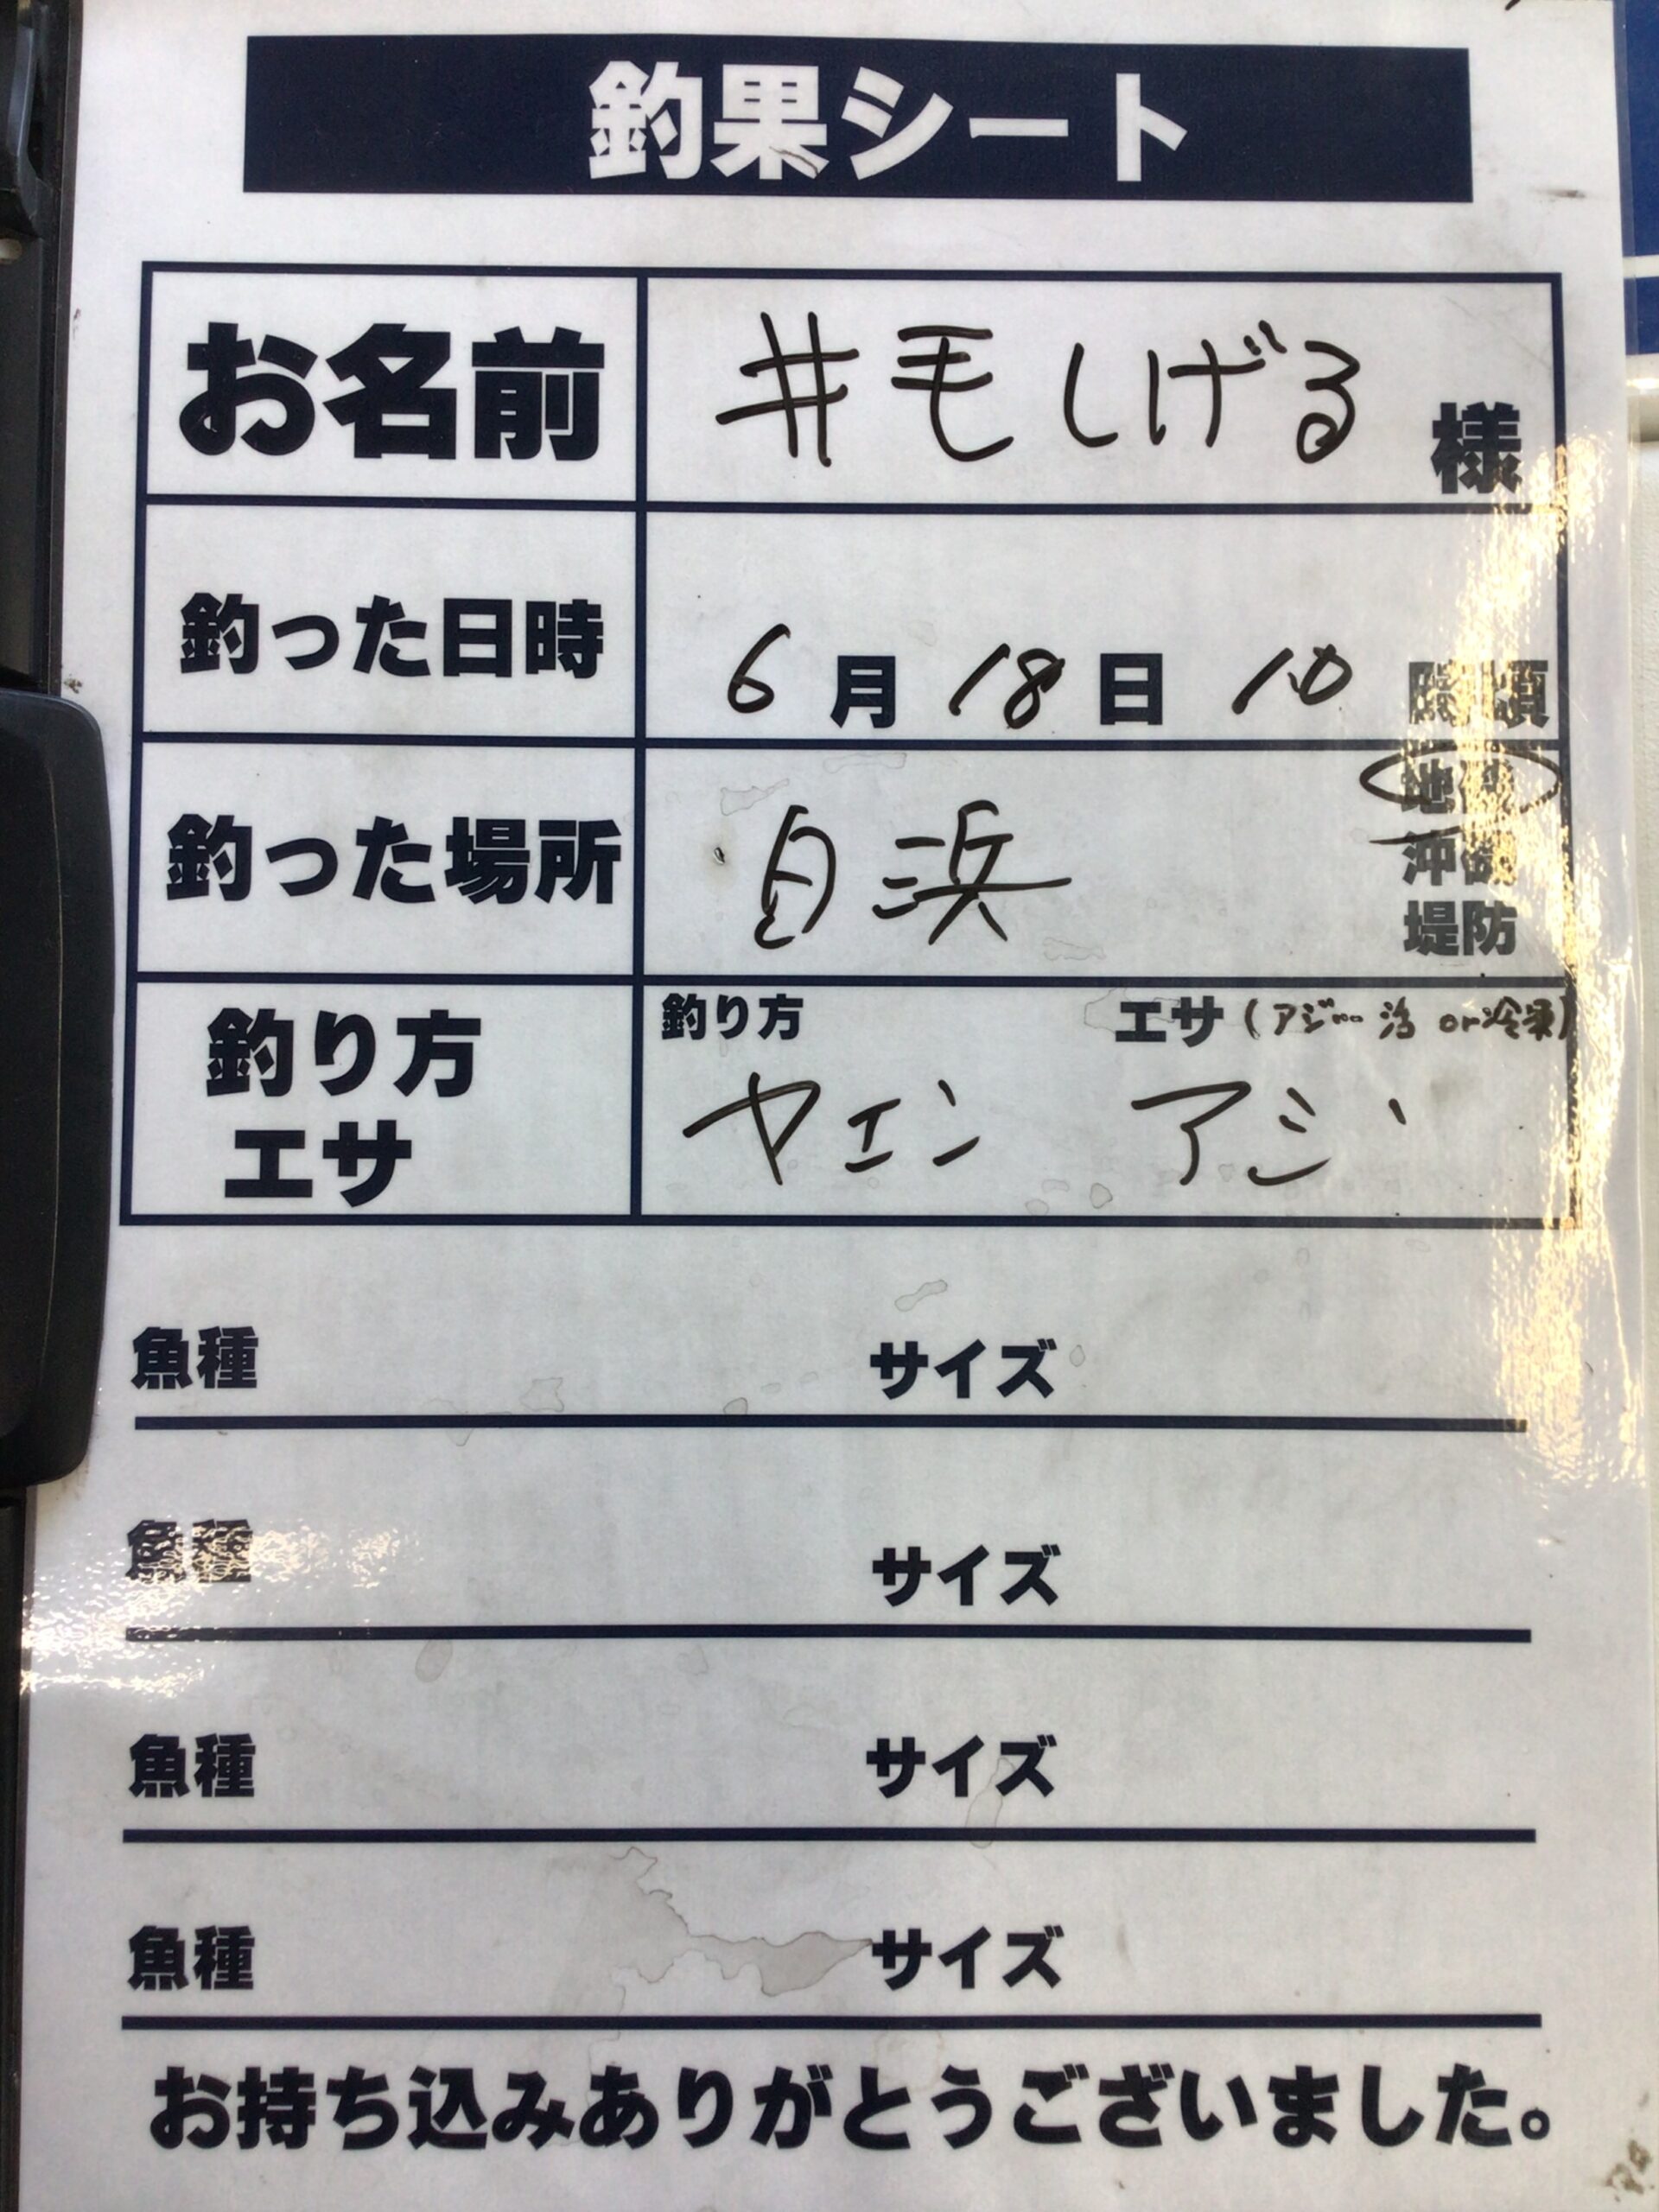 釣果シート
お名前 井毛しげる 様
釣った日時 6月18日10時頃
釣った場所 白浜 地磯
沖磯
堤防
釣り方 エサ(アジ… 活 or 冷凍)
釣り方 ヤエン アジ
エサ
魚種 サイズ
魚種 サイズ
魚種 サイズ
魚種 サイズ
お持ち込みありがとうございました。